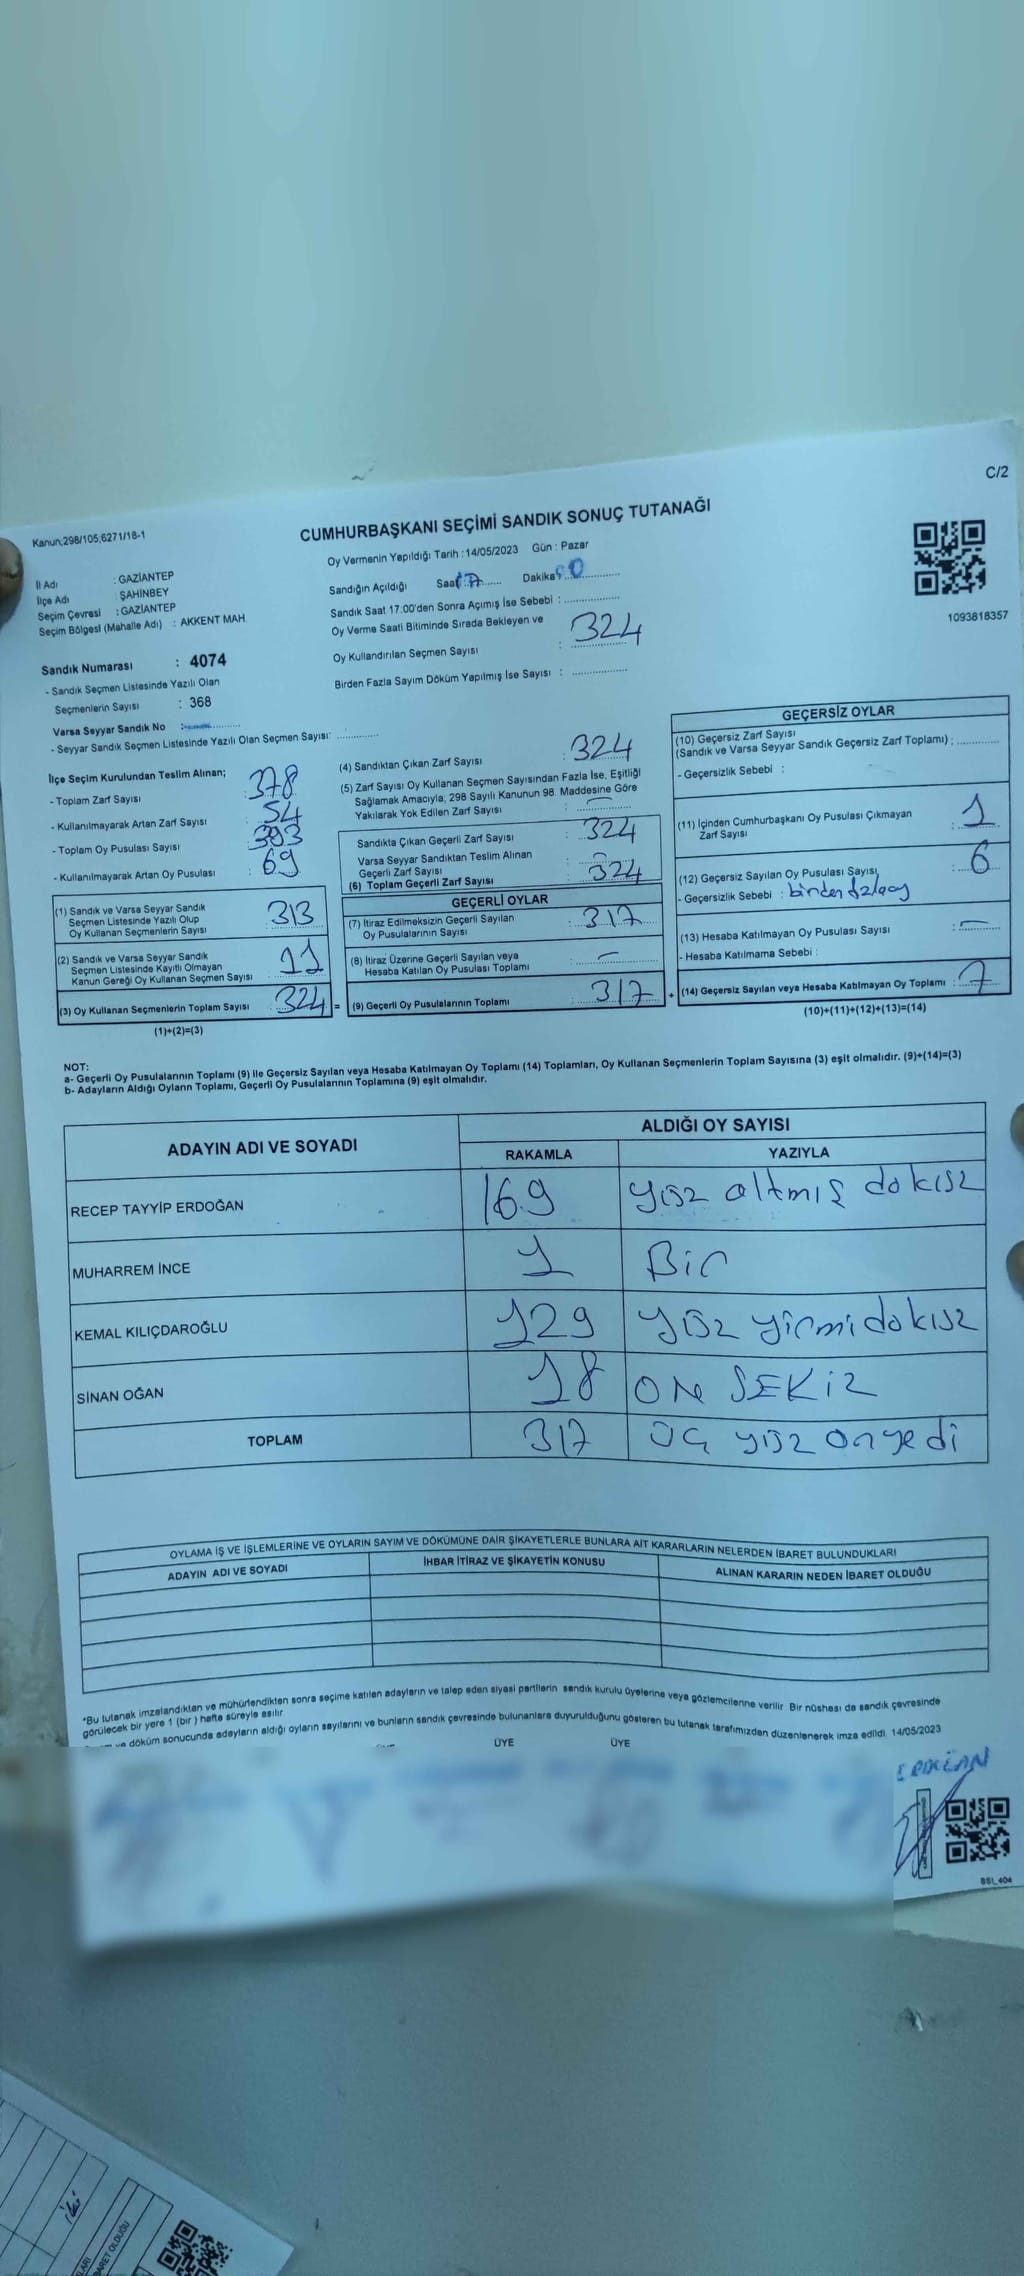 C/2
Kanun;298/105,6271/18-1
CUMHURBAŞKANI SEÇİMİ SANDIK SONUÇ TUTANAĞI
Oy Vermenin Yapıldığı Tarih : 14/05/2023 Gün : Pazar
1093818357
İl Adı : GAZİANTEP
İlçe Adı : ŞAHİNBEY
Seçim Çevresi : GAZİANTEP
Seçim Bölgesi (Mahalle Adı) : AKKENT MAH
Sandık Numarası : 4074
- Sandık Seçmen Listesinde Yazılı Olan
Seçmenlerin Sayısı : 368
Varsa Seyyar Sandık No :
- Seyyar Sandık Seçmen Listesinde Yazılı Olan Seçmen Sayısı:
Sandığın Açıldığı Saat: 17 Dakika:
Sandık Saat 17:00'den Sonra Açımış İse Sebebi :
Oy Verme Saati Bitiminde Sırada Bekleyen ve
Oy Kullandırılan Seçmen Sayısı : 324
Birden Fazla Sayım Döküm Yapılmış İse Sayısı :
İlçe Seçim Kurulundan Teslim Alınan;
- Toplam Zarf Sayısı : 378
- Kullanılmayarak Artan Zarf Sayısı : 54
- Toplam Oy Pusulası Sayısı : 393
- Kullanılmayarak Artan Oy Pusulası : 69
(1) Sandık ve Varsa Seyyar Sandık
Seçmen Listesinde Yazılı Olup
Oy Kullanan Seçmenlerin Sayısı : 313
(2) Sandık ve Varsa Seyyar Sandık
Seçmen Listesinde Kayıtlı Olmayan
Kanun Gereği Oy Kullanan Seçmen Sayısı : 11
(3) Oy Kullanan Seçmenlerin Toplam Sayısı : 324 =
(1)+(2)=(3)
(4) Sandıktan Çıkan Zarf Sayısı : 324
(5) Zarf Sayısı Oy Kullanan Seçmen Sayısından Fazla İse, Eşitliği
Sağlamak Amacıyla; 298 Sayılı Kanunun 98. Maddesine Göre
Yakılarak Yok Edilen Zarf Sayısı : —
Sandıkta Çıkan Geçerli Zarf Sayısı : 324
Varsa Seyyar Sandıktan Teslim Alınan
Geçerli Zarf Sayısı : —
(6) Toplam Geçerli Zarf Sayısı : 324
GEÇERLİ OYLAR
(7) İtiraz Edilmeksizin Geçerli Sayılan
Oy Pusulalarının Sayısı : 317
(8) İtiraz Üzerine Geçerli Sayılan veya
Hesaba Katılan Oy Pusulası Toplamı : —
(9) Geçerli Oy Pusulalarının Toplamı : 317 +
GEÇERSİZ OYLAR
(10) Geçersiz Zarf Sayısı
(Sandık ve Varsa Seyyar Sandık Geçersiz Zarf Toplamı) :
- Geçersizlik Sebebi :
(11) İçinden Cumhurbaşkanı Oy Pusulası Çıkmayan
Zarf Sayısı : 1
(12) Geçersiz Sayılan Oy Pusulası Sayısı : 6
- Geçersizlik Sebebi : birden fazla oy
(13) Hesaba Katılmayan Oy Pusulası Sayısı : —
- Hesaba Katılmama Sebebi :
(14) Geçersiz Sayılan veya Hesaba Katılmayan Oy Toplamı : 7
(10)+(11)+(12)+(13)=(14)
NOT:
a- Geçerli Oy Pusulalarının Toplamı (9) ile Geçersiz Sayılan veya Hesaba Katılmayan Oy Toplamı (14) Toplamları, Oy Kullanan Seçmenlerin Toplam Sayısına (3) eşit olmalıdır. (9)+(14)=(3)
b- Adayların Aldığı Oyların Toplamı, Geçerli Oy Pusulalarının Toplamına (9) eşit olmalıdır.
ADAYIN ADI VE SOYADI
ALDIĞI OY SAYISI
RAKAMLA YAZIYLA
RECEP TAYYİP ERDOĞAN 169 yüz altmış dokuz
MUHARREM İNCE 1 Bir
KEMAL KILIÇDAROĞLU 129 yüz yirmi dokuz
SİNAN OĞAN 18 ON SEKİZ
TOPLAM 317 üç yüz onyedi
OYLAMA İŞ VE İŞLEMLERİNE VE OYLARIN SAYIM VE DÖKÜMÜNE DAİR ŞİKAYETLERLE BUNLARA AİT KARARLARIN NELERDEN İBARET BULUNDUKLARI
ADAYIN ADI VE SOYADI İHBAR İTİRAZ VE ŞİKAYETİN KONUSU ALINAN KARARIN NEDEN İBARET OLDUĞU
*Bu tutanak imzalandıktan ve mühürlendikten sonra seçime katılan adayların ve talep eden siyasi partilerin sandık kurulu üyelerine veya gözlemcilerine verilir Bir nüshası da sandık çevresinde
görülecek bir yere 1 (bir ) hafta süreyle asılır
ve döküm sonucunda adayların aldığı oyların sayılarını ve bunların sandık çevresinde bulunanlara duyurulduğunu gösteren bu tutanak tarafımızdan düzenlenerek imza edildi. 14/05/2023
ÜYE ÜYE
BSI_404
iki
BARET OLDUĞU